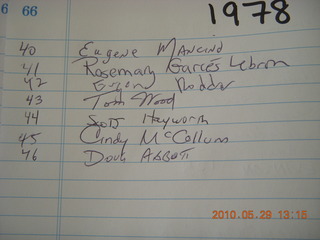 6 66
1978
40 Eugene Mancino
41 Rosemary Garcés Lebron
42
43 Tom Wood
44 Scott Hayworth
45 Cindy McCollum
46 Doug Abbott
2010.05.29 13:16